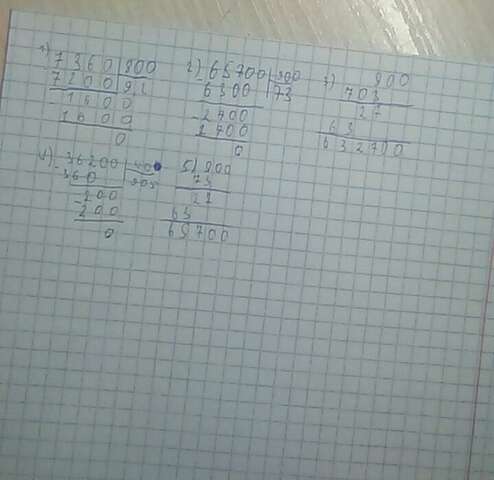 1) 7360 | 800
7200 | 92
- 1600
1600
0
2) 65700 | 900
- 6300 | 73
- 2700
2700
0
3) 900
703
27
63
632700
4) - 36200 | 40
360 | 905
- 200
200
0
5) 900
73
27
63
65700